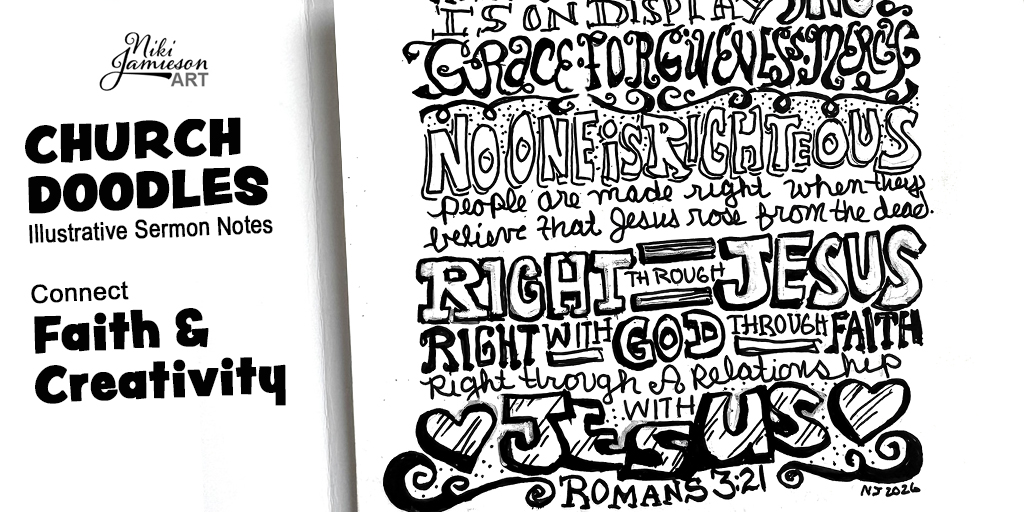 Niki
Jamieson
ART
CHURCH
DOODLES
Illustrative Sermon Notes
Connect
Faith &
Creativity
IS ON DISPLAY
GRACE·FORGIVENESS·MERCY
NO ONE iS RIGHTEOUS
people are made right when they
believe that Jesus rose from the dead.
RIGHT THROUGH JESUS
RIGHT WITH GOD THROUGH FAITH
Right through A Relationship
WITH
JESUS
ROMANS 3:21
NJ 2026